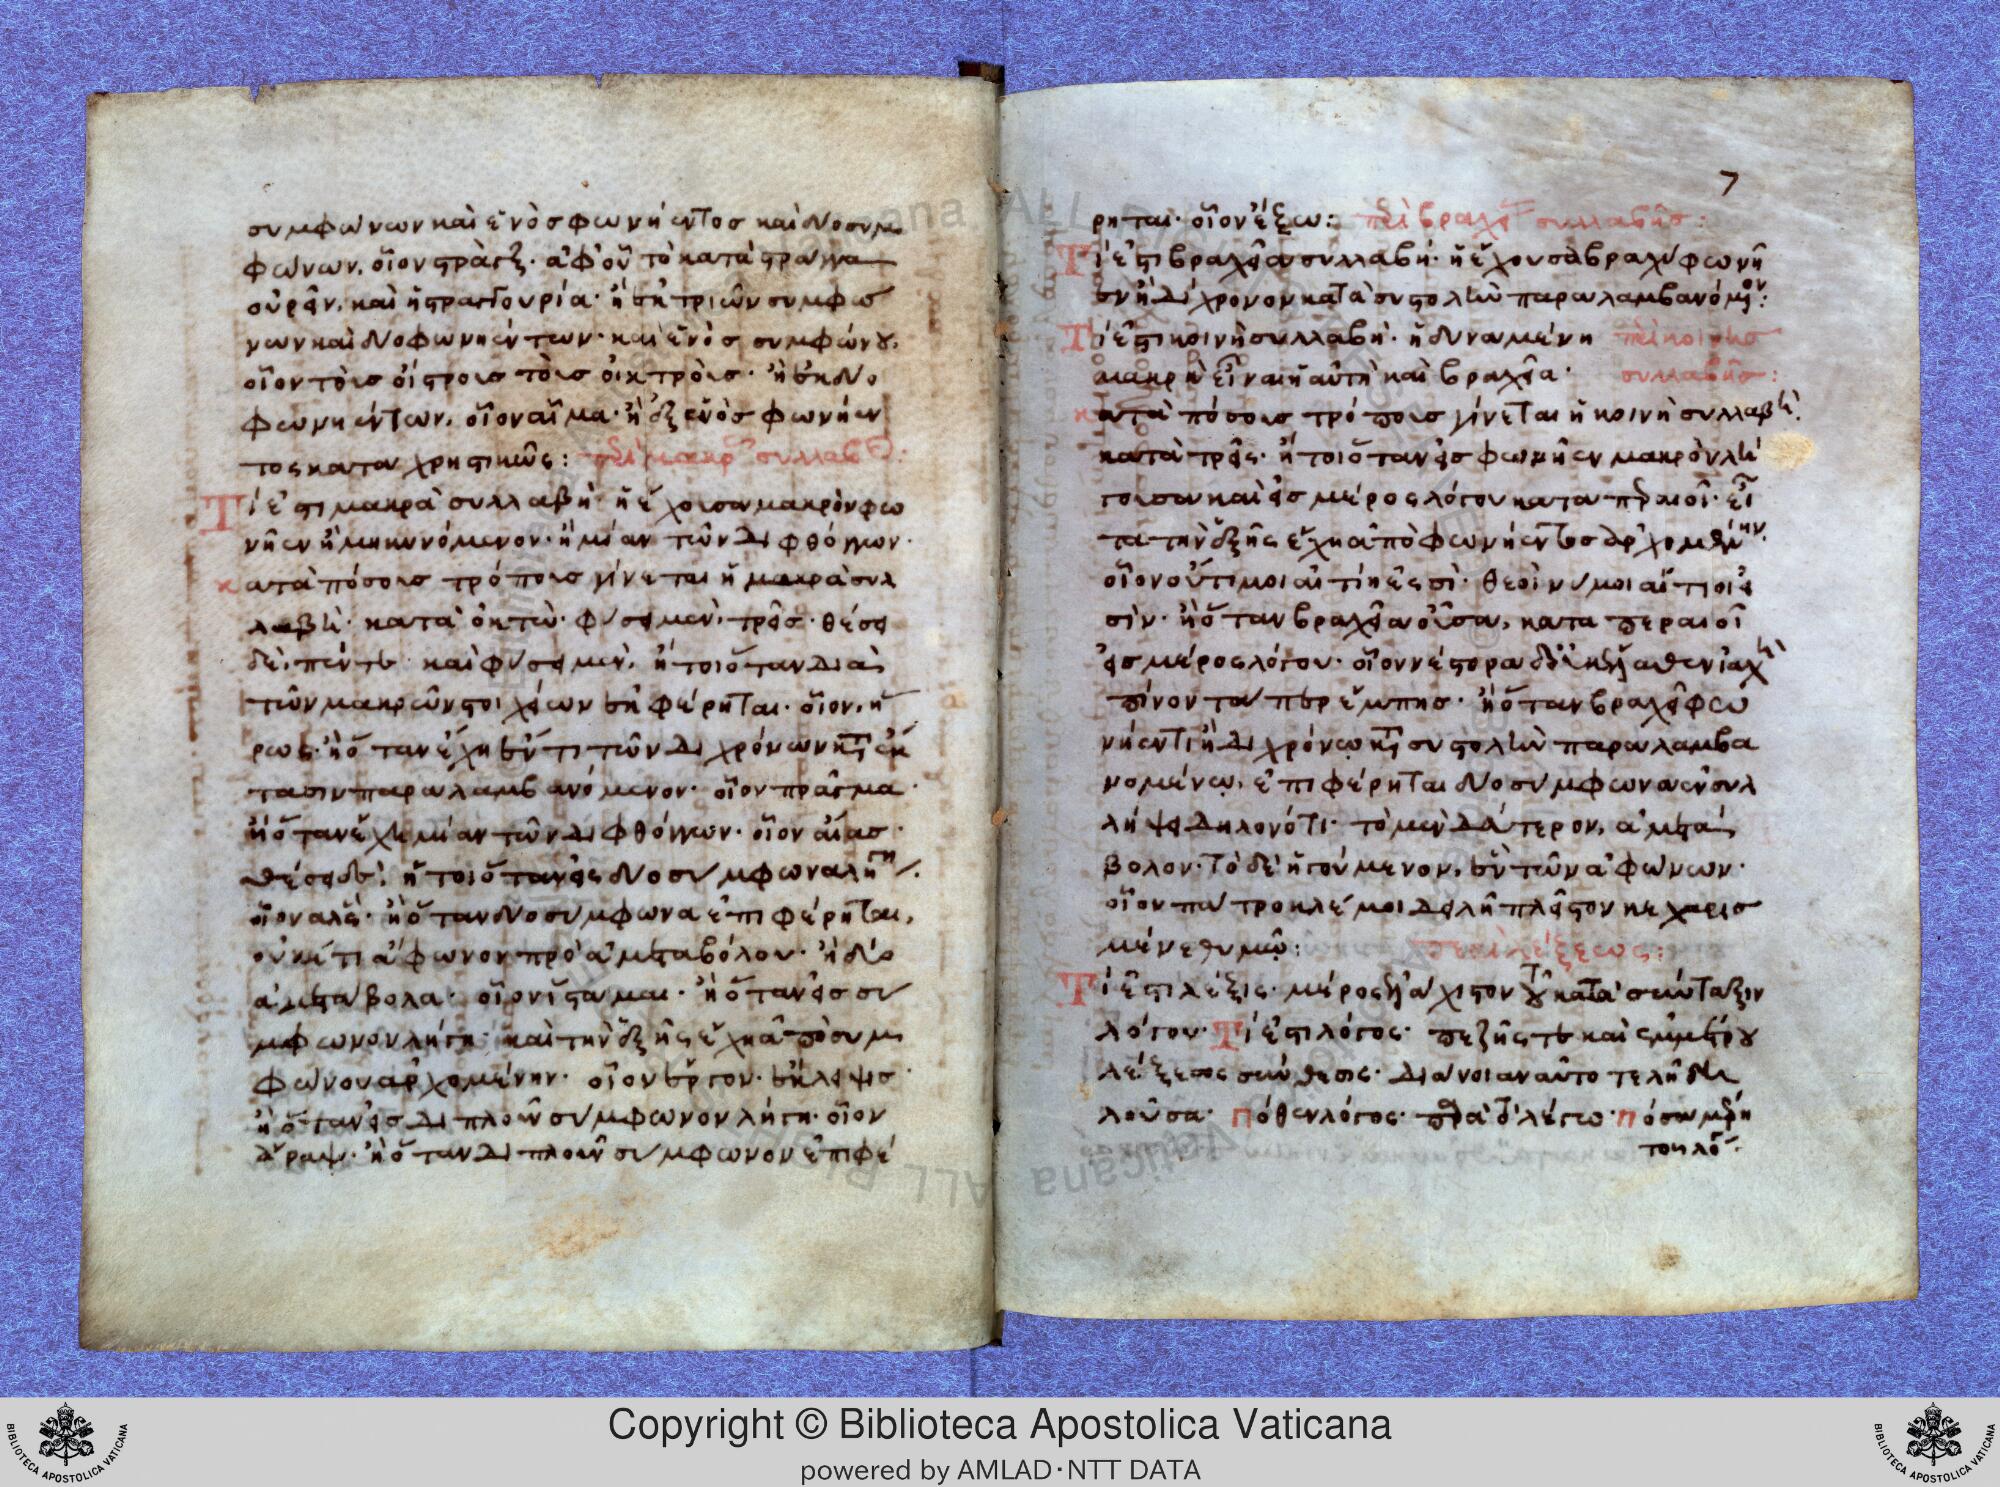 συμφώνων καὶ ἑνὸσ φωνήεντοσ καὶ δύο συμ
φώνων, οἷον στράγξ· ἀφ' οὗ τὸ κατὰ στράγγα
οὐρεῖν, καὶ ἡ στραγγουρία· ἢ ἐκ τριῶν συμφώ
νων καὶ δύο φωνηέντων· καὶ ἑνὸσ συμφώνου,
οἷον τοῖσ οἴστροισ τοῖσ οἰκτροῖσ· ἢ ἐκ δύο
φωνηέντων, οἷον αἷμα· ἢ ἐξ ἑνὸσ φωνήεν
τος καταχρηστικῶς: περὶ μακρᾶσ συλλαβῆσ:
Τί ἐστι μακρὰ συλλαβή· ἡ ἔχουσα μακρὸν φω
νῆεν ἢ μηκυνόμενον· ἢ μίαν τῶν διφθόγγων·
κατὰ πόσουσ τρόπουσ γίνεται ἡ μακρὰ συλ
λαβή· κατὰ ὀκτώ· φύσει μὲν, τρεῖσ· θέσει
δὲ, πέντε καὶ φύσει μὲν, ἤτοι ὅταν διὰ
τῶν μακρῶν στοιχείων ἐκφέρηται· οἷον, ἥ
ρως· ἢ ὅταν ἔχη ἕν τι τῶν διχρόνων κατ' ἔκ
τασιν παραλαμβανόμενον· οἷον πρᾶγμα·
ἢ ὅταν ἔχη μίαν τῶν διφθόγγων· οἷον αἴασ·
θέσει δὲ, ἤτοι ὅταν εἰς δύο σύμφωνα λήγη·
οἷον ἅλς· ἢ ὅταν δύο σύμφωνα ἐπιφέρηται,
οὐκέτι ἄφωνον πρὸ ἀμεταβόλου· ἢ δύο
ἀμετάβολα· οἷον ἵσταμαι· ἢ ὅταν εἰσ σύ
μφωνον λήγη καὶ τὴν ἑξῆς ἔχη ἀπὸ συμ
φώνου ἀρχομένην· οἷον ἔργον·
ἢ ὅταν εἰσ διπλοῦν σύμφωνον λήγη· οἷον
ἄραψ· ἢ ὅταν διπλοῦν σύμφωνον ἐπιφέ
7
ρηται· οἷον ἔξω: περὶ βραχείασ συλλαβῆσ:
Τί ἐστι βραχεῖα συλλαβή· ἡ ἔχουσα βραχὺ φωνῆ
εν ἢ δίχρονον κατὰ συστολὴν παραλαμβανόμενον:
Τί ἐστι κοινὴ συλλαβή· ἡ δυναμένη περὶ κοινῆσ
μακρὴ εἶναι ἡ αὐτὴ καὶ βραχεῖα· συλλαβῆσ:
κατὰ πόσουσ τρόπουσ γίνεται ἡ κοινὴ συλλαβή·
κατὰ τρεῖς· ἤτοι ὅταν εἰσ φωνῆεν μακρὸν λή
γουσα καὶ εἰσ μέρος λόγου καταπεραιοῖ· εἶ
τα τὴν ἑξῆς ἔχη ἀπὸ φωνήεντος ἀρχομένην·
οἷον οὔτι μοι αἰτίη ἐσσὶ· θεοί νύ μοι αἴτιοί εἰ
σίν· ἢ ὅταν βραχεῖα οὖσα, καταπεραιοῖ
εἰσ μέρος λόγου· οἷον νέστορα δ' οὐκ ἔλαθεν ἰαχὴ
πίνοντα περ ἔμπησ· ἢ ὅταν βραχεῖ φω
νήεντι ἢ διχρόνῳ κατὰ συστολὴν παραλαμβα
νομένῳ, ἐπιφέρηται δύο σύμφωνα ἐν συλ
λήψει δηλονότι· τὸ μὲν δεύτερον, ἀμετά
βολον· τὸ δὲ ἡγούμενον, ἓν τῶν ἀφώνων·
οἷον πάτροκλέ μοι δειλῆ πλεῖστον κεχαρισ
μένε θυμῷ: περὶ λέξεως:
Τί ἐστι λέξις· μέρος ἐλάχιστον τοῦ κατὰ σύνταξιν
λόγου· Τί ἐστι λόγος· πεζῆς τε καὶ ἐμμέτρου
λέξεως σύνθεσις· διάνοιαν αὐτοτελῆ δη
λοῦσα· Πόθεν λόγος· παρὰ τὸ λέγω· Πόσα μέρη
τοῦ λόγου·
Copyright © Biblioteca Apostolica Vaticana
powered by AMLAD·NTT DATA
BIBLIOTECA APOSTOLICA VATICANA
BIBLIOTECA APOSTOLICA VATICANA